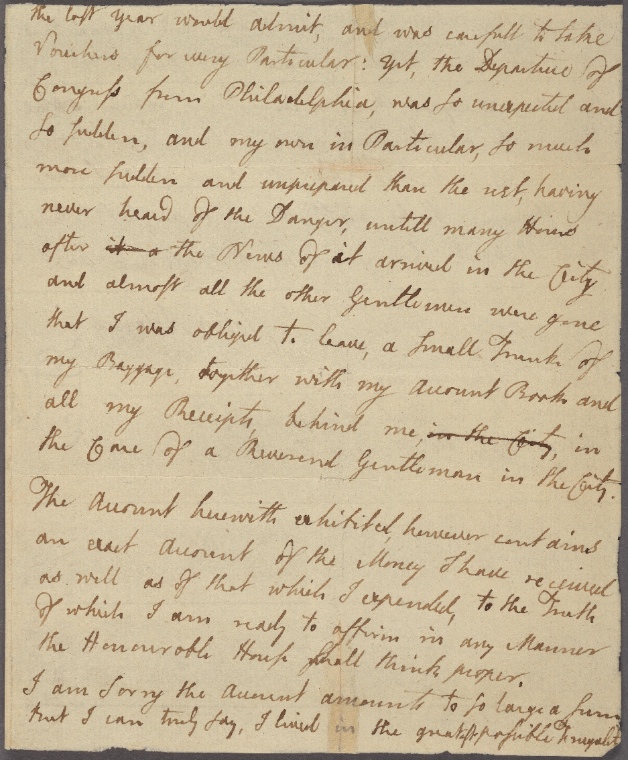 the last year would admit, and was carefull to take
Vouchers for every Particular: yet, the Departure of
Congress from Philadelphia, was so unexpected and
so sudden, and my own in Particular, so much
more sudden and unprepared than the rest, having
never heard of the Danger, untill many Hours
after it a the News of it arrived in the City
and almost all the other Gentlemen were gone
that I was obliged to leave, a small Trunk of
my Baggage, together with my Account Books and
all my Receipts, behind me, in the City, in
the Care of a Reverend Gentleman in the City.
The Account herewith exhibited, however contains
an exact Account of the Money I have received
as well as of that which I expended, to the Truth
of which I am ready to affirm in any Manner
the Honourable House shall think proper.
I am sorry the Account amounts to so large a Sum
but I can truly say, I lived in the greatest possible Frugality